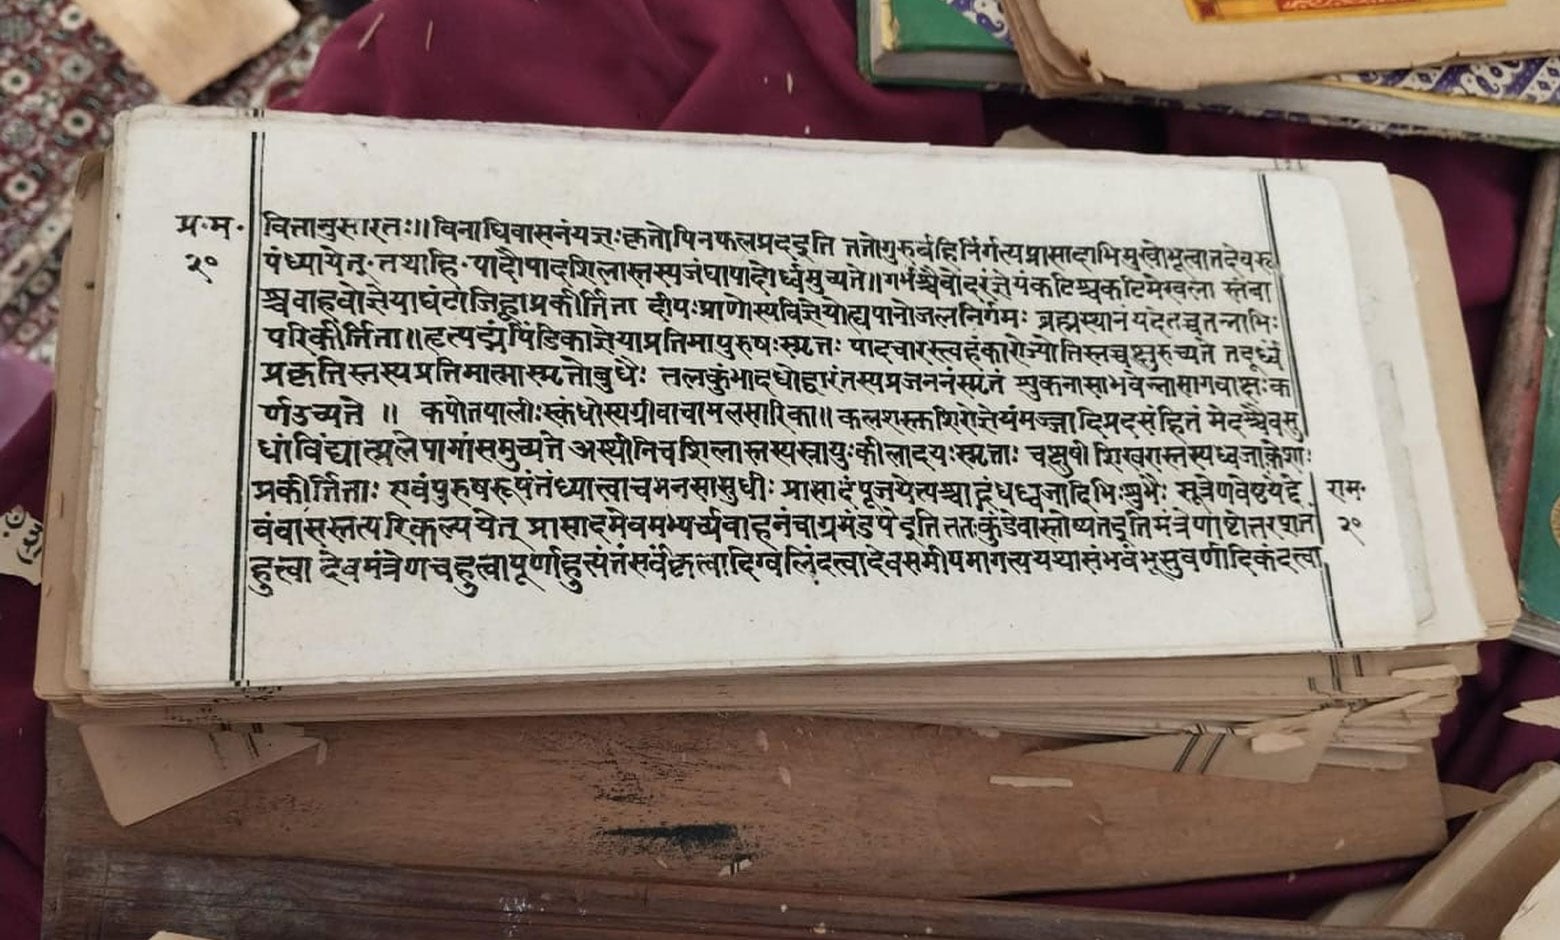 प्र॰म॰ वित्तानुसारतः॥विनाधिवासनंयज्ञःकृतोपिनफलप्रदइति ततोगुरुर्बहिर्निर्गत्यप्रासादाभिमुखोभूत्वातदेवरू
२० पंध्यायेत्॰तथाहि॰पादौपादशिलास्तस्यजंघापादोर्ध्वमुच्यते॥गर्भश्चैवोदरंज्ञेयंकटिश्चकटिमेखला स्तंबा
श्चबाहवोज्ञेयाघंटाजिह्वाप्रकीर्त्तिता दीपःप्राणोस्यविज्ञेयोह्यपानोजलनिर्गमः ब्रह्मस्थानंयदेतच्चतन्नाभिः
परिकीर्त्तिता॥हृत्पद्मंपिंडिकाज्ञेयाप्रतिमापुरुषःस्मृतः पादचारस्त्वहंकारोज्योतिस्तच्चक्षुरुच्यते तदूर्ध्वं
प्रकृतिस्तस्यप्रतिमात्मास्मृतोबुधैः तलकुंभादधोद्वारंतस्यप्रजननंस्मृतं शुकनासाभवेन्नासागवाक्षःक
र्णउच्यते ॥ कपोतपालीःस्कंधोस्यग्रीवाचामलसारिका॥कलशस्तुशिरोज्ञेयंमज्जादिप्रदसंहितं मेदश्चैवसु
धांविंद्यात्प्रलेपामांसमुच्यते अस्थीनिचशिलास्तस्यस्नायुःकीलादयःस्मृताः चक्षुषीशिखरास्तस्यध्वजाकेशाः
प्रकीर्त्तिताः एवंपुरुषरूपंतंध्यात्वाचमनसासुधीः प्रासादंपूजयेत्पश्चाद्गंधध्वजादिभिःशुभैः सूत्रेणवेष्टयेद्दे राम॰
वंवासस्तत्परिकल्पयेत् प्रासादमेवमभ्यर्च्यवाहनंचाग्रमंडपेइति ततःकुंडेवास्तोष्पतइतिमंत्रेणाष्टोत्तरशतं २०
हुत्वा देवमंत्रेणचहुत्वापूर्णाहुत्यंतंसर्वंकृत्वादिग्बलिंदत्वादेवसमीपमागत्ययथासंभवंभूसुवर्णादिकंदत्वा